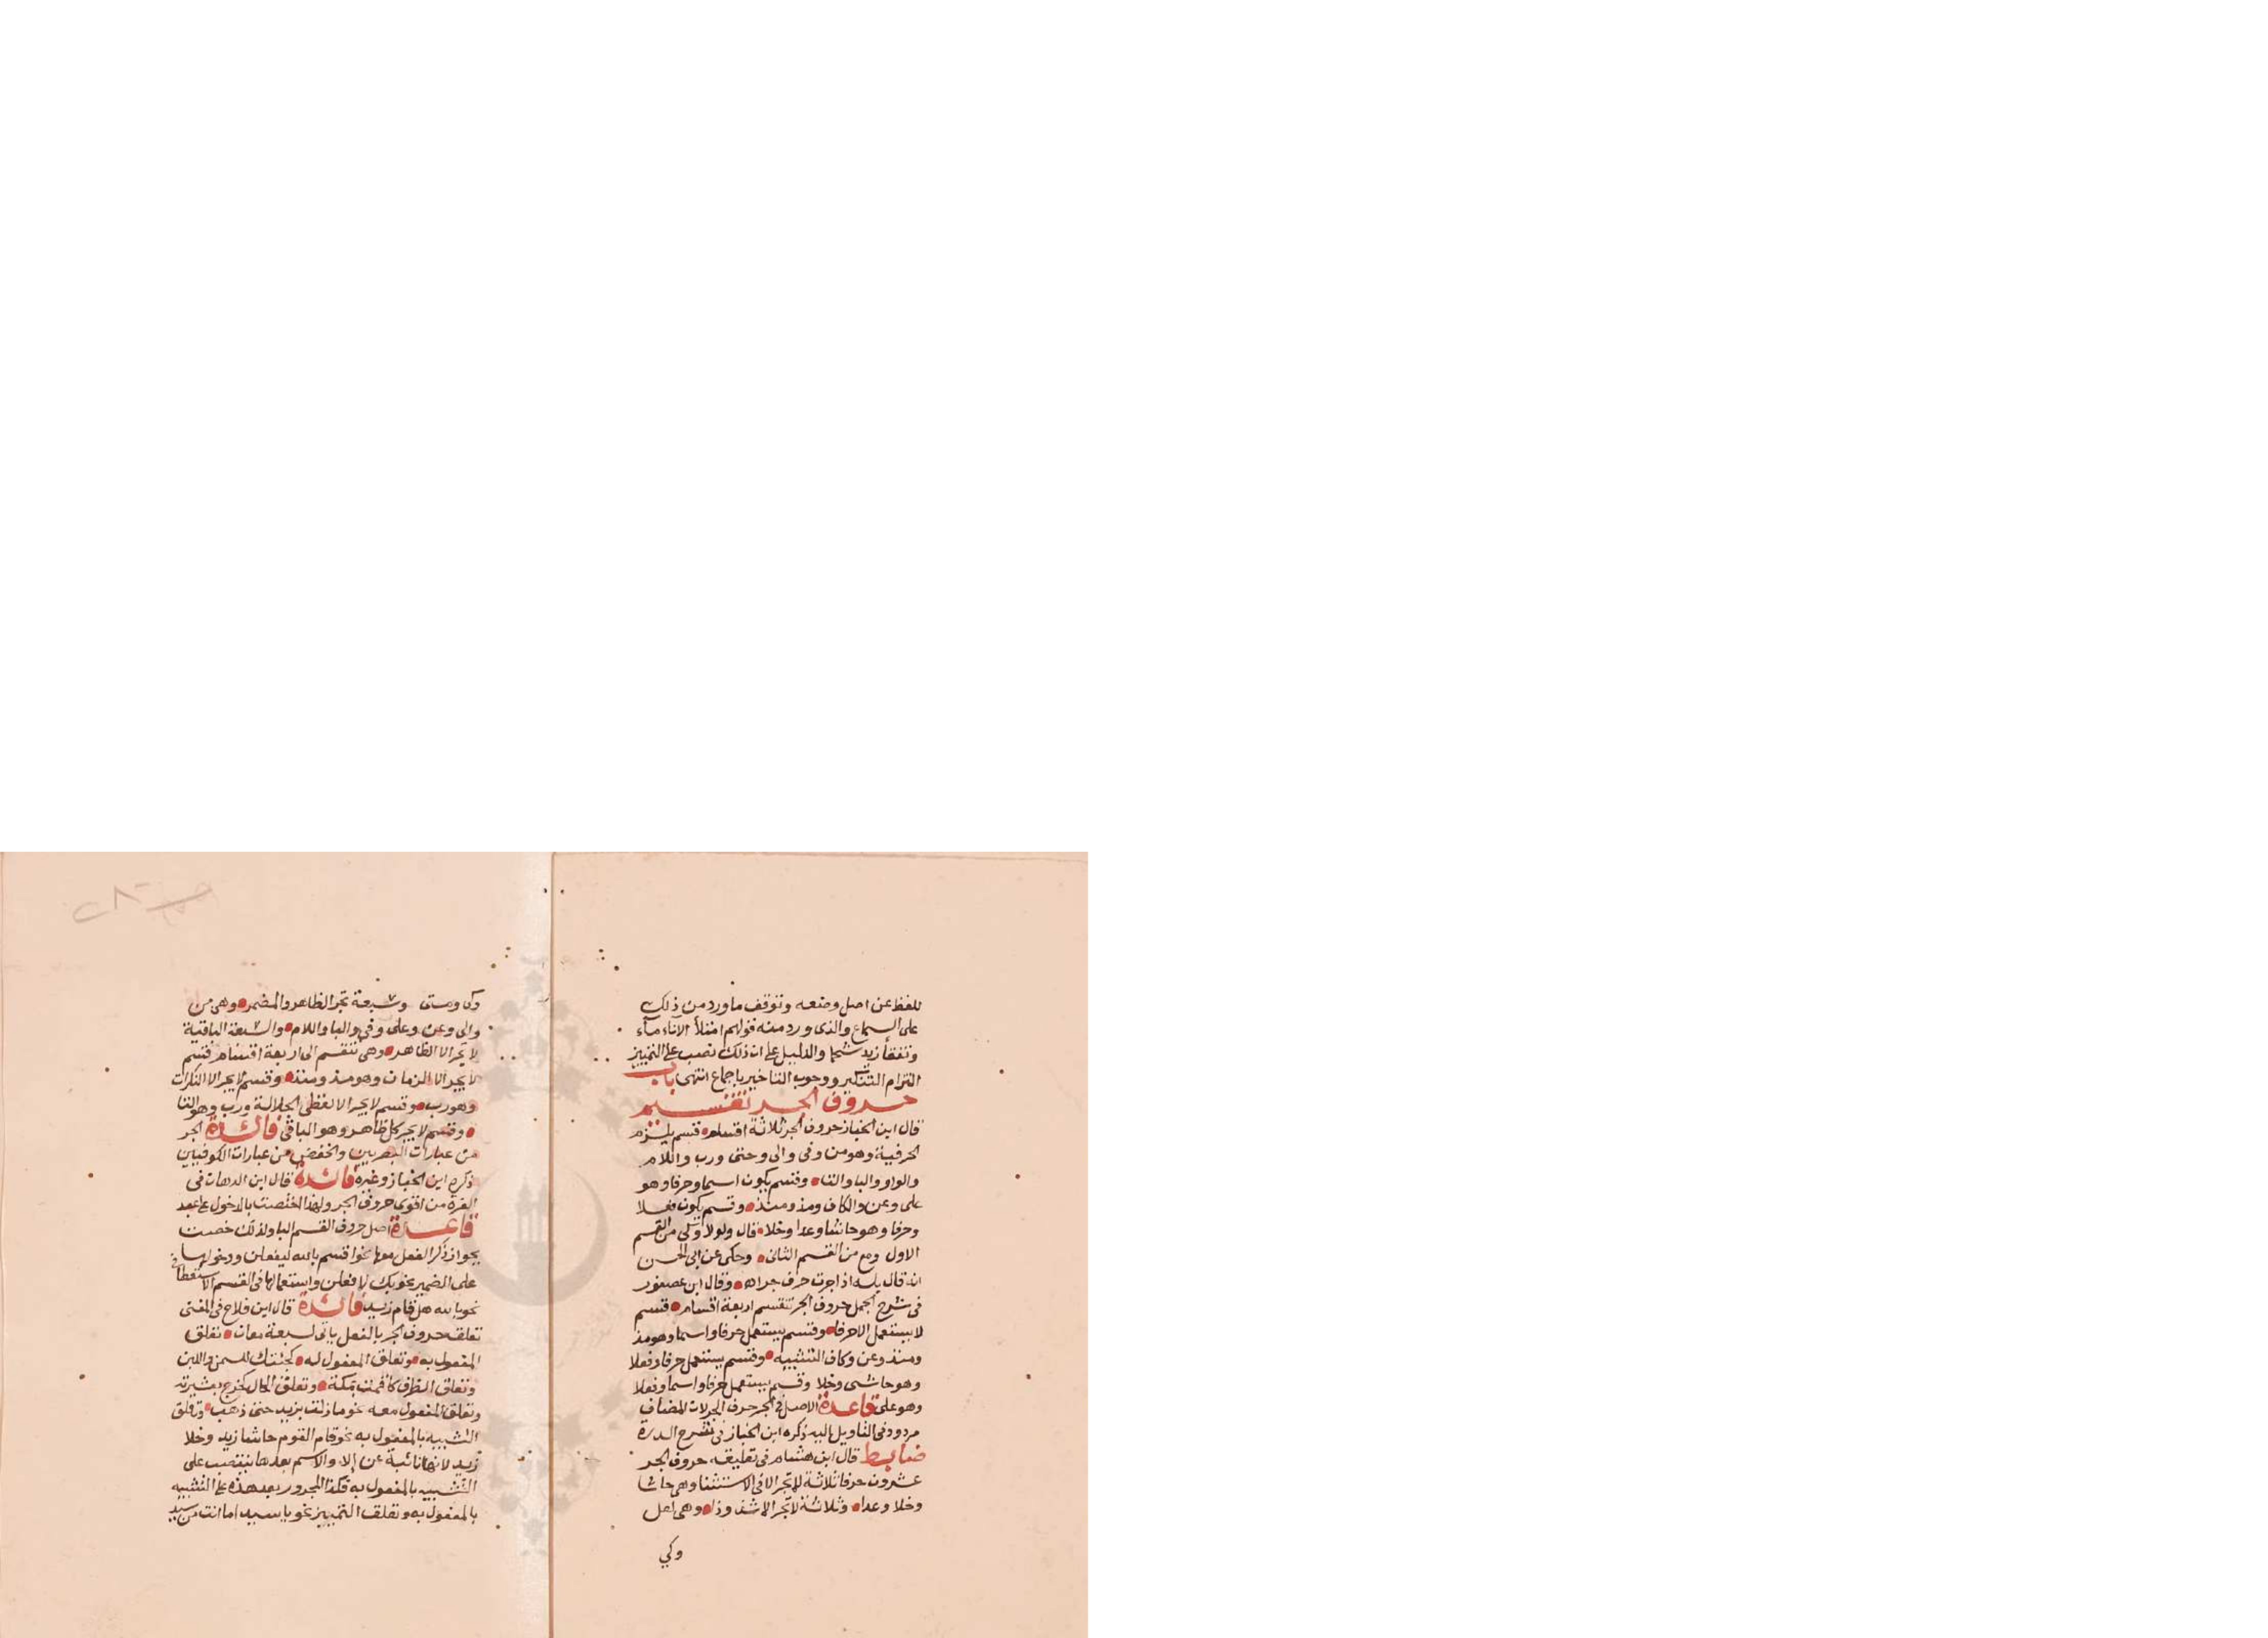 للفظ عن اصل وضعه وتوقف ماورد من ذلك
على السماع والذى ورد منه قولهم امتلأ الاناء ماء
وتفقأ زيد شحما والدليل على ان ذلك نصب على التمييز
التزام التنكير ووجوب التاخير باجماع انتهى باب
حروف الجر تقسيم
قال ابن الخباز حروف الجر ثلاثة اقسام قسم يلزم
الحرفية وهو من وفى والى وحتى ورب واللام
والواو والبا والتا وقسم يكون اسما وحرفا وهو
على وعن والكاف ومذ ومنذ وقسم يكون فعلا
وحرفا وهو حاشا وعدا وخلا قال ولولا وكى من القسم
الاول ومع من القسم الثانى وحكى عن ابى الحسن
انه قال بله اذا جرت حرف جر اه وقال ابن عصفور
فى شرح الجمل حروف الجر تنقسم اربعة اقسام قسم
لا يستعمل الا حرفا وقسم يستعمل حرفا واسما وهو مذ
ومنذ وعن وكاف التشبيه وقسم يستعمل حرفا وفعلا
وهو حاشى وخلا وقسم يستعمل حرفا واسما وفعلا
وهو على قاعدة الاصل فى الجر حرف الجر لان المضاف
مردود فى التاويل اليه ذكره ابن الخباز فى شرح الدرة
ضابط قال ابن هشام فى تعليقه حروف الجر
عشرون حرفا ثلاثة لا تجر الا فى الاستثنا وهى حاشا
وخلا وعدا وثلاثة لا تجر الا شذوذا وهى لعل
وكي
وكى ومتى وسبعة تجر الظاهر والمضمر وهى من
والى وعن وعلى وفى والبا واللام والسبعة الباقية
لا تجر الا الظاهر وهى تنقسم الى اربعة اقسام قسم
لا يجر الا الزمان وهو مذ ومنذ وقسم لا يجر الا النكرات
وهو رب وقسم لا يجر الا لفظى الجلالة ورب وهو التا
وقسم لا يجر كل ظاهر وهو الباقى فائدة الجر
من عبارات البصريين والخفض من عبارات الكوفيين
ذكره ابن الخباز وغيره فائدة قال ابن الدهان فى
الغرة من اقوى حروف الجر ولهذا اختصت بالدخول على عند
قاعدة اصل حروف القسم البا ولذلك خصت
بجواز ذكر الفعل معها نحو اقسم بالله ليفعلن ودخولها
على الضمير نحو بك لافعلن واستعمالها فى القسم الاستعطافى
نحو بالله هل قام زيد فائدة قال ابن فلاح فى المغنى
تعلق حروف الجر بالفعل ياتى لسبعة معان تعلق
المفعول به وتعلق المفعول له كجئتك للسمن واللبن
وتعلق الظرف كاقمت بمكة وتعلق الحال كخرج بعشيرته
وتعلق المفعول معه نحو مازلت بزيد حتى ذهب وتعلق
التشبيه بالمفعول به نحو قام القوم حاشا زيد وخلا
زيد لانها نائبة عن إلا والاسم بعدها ينتصب على
التشبيه بالمفعول به فكذا المجرور بعد هذه على التشبيه
بالمفعول به وتعلق التمييز نحو ياسيدا ما انت من سيد